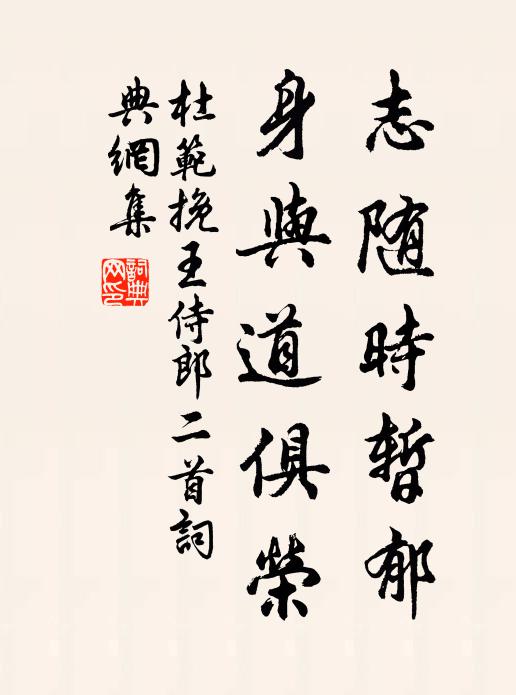 志随時暫郁
身與道俱榮
杜範挽王侍郎二首詞
典網集
詞典網印